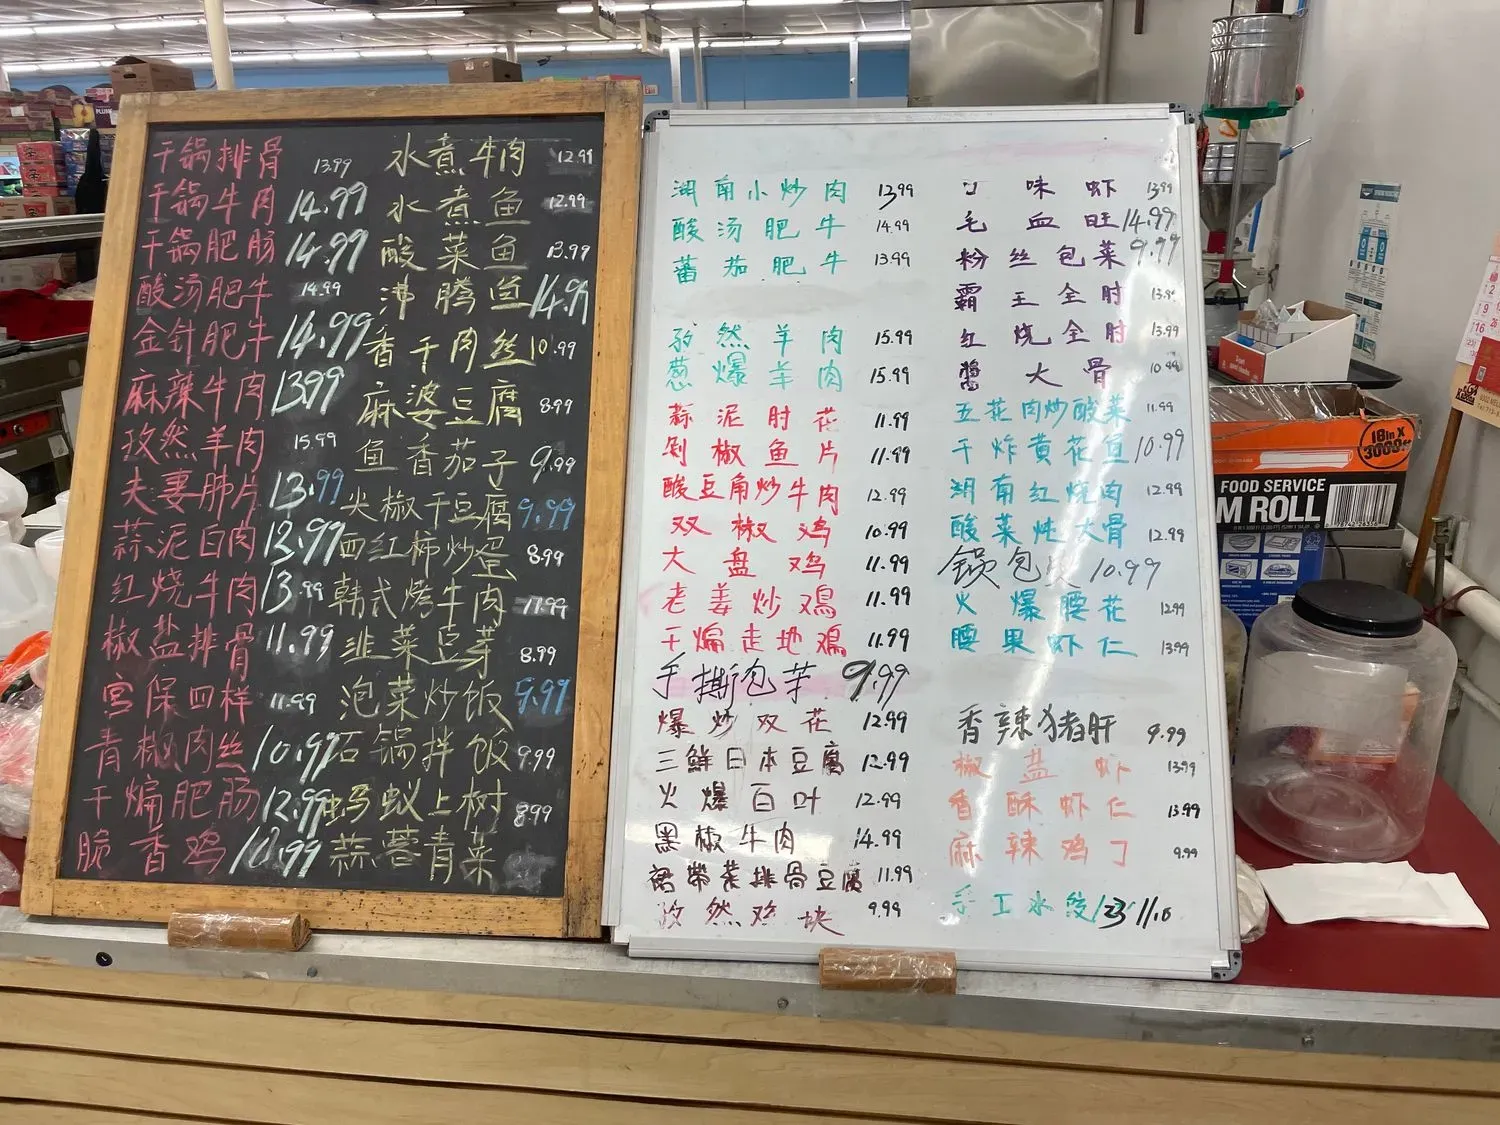 干锅排骨 13.99
干锅牛肉 14.99
干锅肥肠 14.99
酸汤肥牛 14.99
金针肥牛 14.99
麻辣牛肉 13.99
孜然羊肉 15.99
夫妻肺片 13.99
蒜泥白肉 12.99
红烧牛肉 13.99
椒盐排骨 11.99
宫保四样 11.99
青椒肉丝 10.99
干煸肥肠 12.99
脆香鸡 10.99
水煮牛肉 12.99
水煮鱼 12.99
酸菜鱼 13.99
沸腾鱼 14.99
香干肉丝 10.99
麻婆豆腐 8.99
鱼香茄子 9.99
尖椒干豆腐 9.99
西红柿炒蛋 8.99
韩式烤牛肉 11.99
韭菜豆芽 8.99
泡菜炒饭 9.99
石锅拌饭 9.99
蚂蚁上树 8.99
蒜蓉青菜
湖南小炒肉 13.99
酸汤肥牛 14.99
蕃茄肥牛 13.99
孜然羊肉 15.99
葱爆羊肉 15.99
蒜泥肘花 11.99
剁椒鱼片 11.99
酸豆角炒牛肉 12.99
双椒鸡 10.99
大盘鸡 11.99
老姜炒鸡 11.99
干煸走地鸡 11.99
手撕包芽 9.99
爆炒双花 12.99
三鲜日本豆腐 12.99
火爆百叶 12.99
黑椒牛肉 14.99
海带菜排骨豆腐 11.99
孜然鸡块 9.99
味虾 13.99
毛血旺 14.99
粉丝包菜 9.99
霸王全肘 13.99
红烧全肘 13.99
酱大骨 10.99
五花肉炒酸菜 11.99
干炸黄花鱼 10.99
湖南红烧肉 12.99
酸菜炖大骨 12.99
锅包 10.99
火爆腰花 12.99
腰果虾仁 13.99
香辣猪肝 9.99
椒盐虾 13.99
香酥虾仁 13.99
麻辣鸡丁 9.99
手工水饺
FOOD SERVICE
M ROLL
18in X
3000